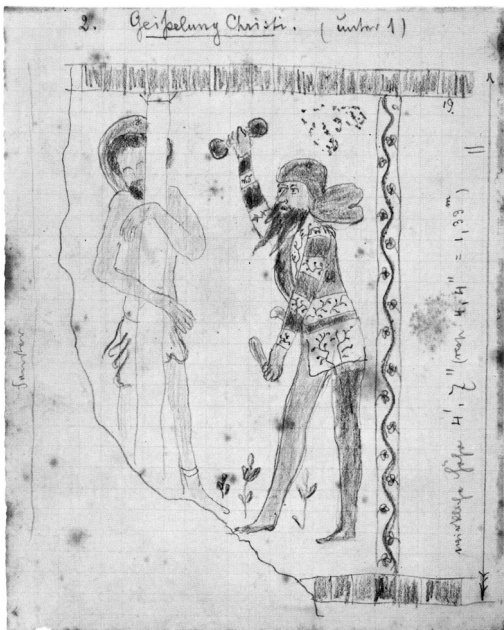 2. Geißelung Christi. (unter 1)
19.
wirkliche Höhe 4', 7" (resp. 4, 4" = 1,39 m)